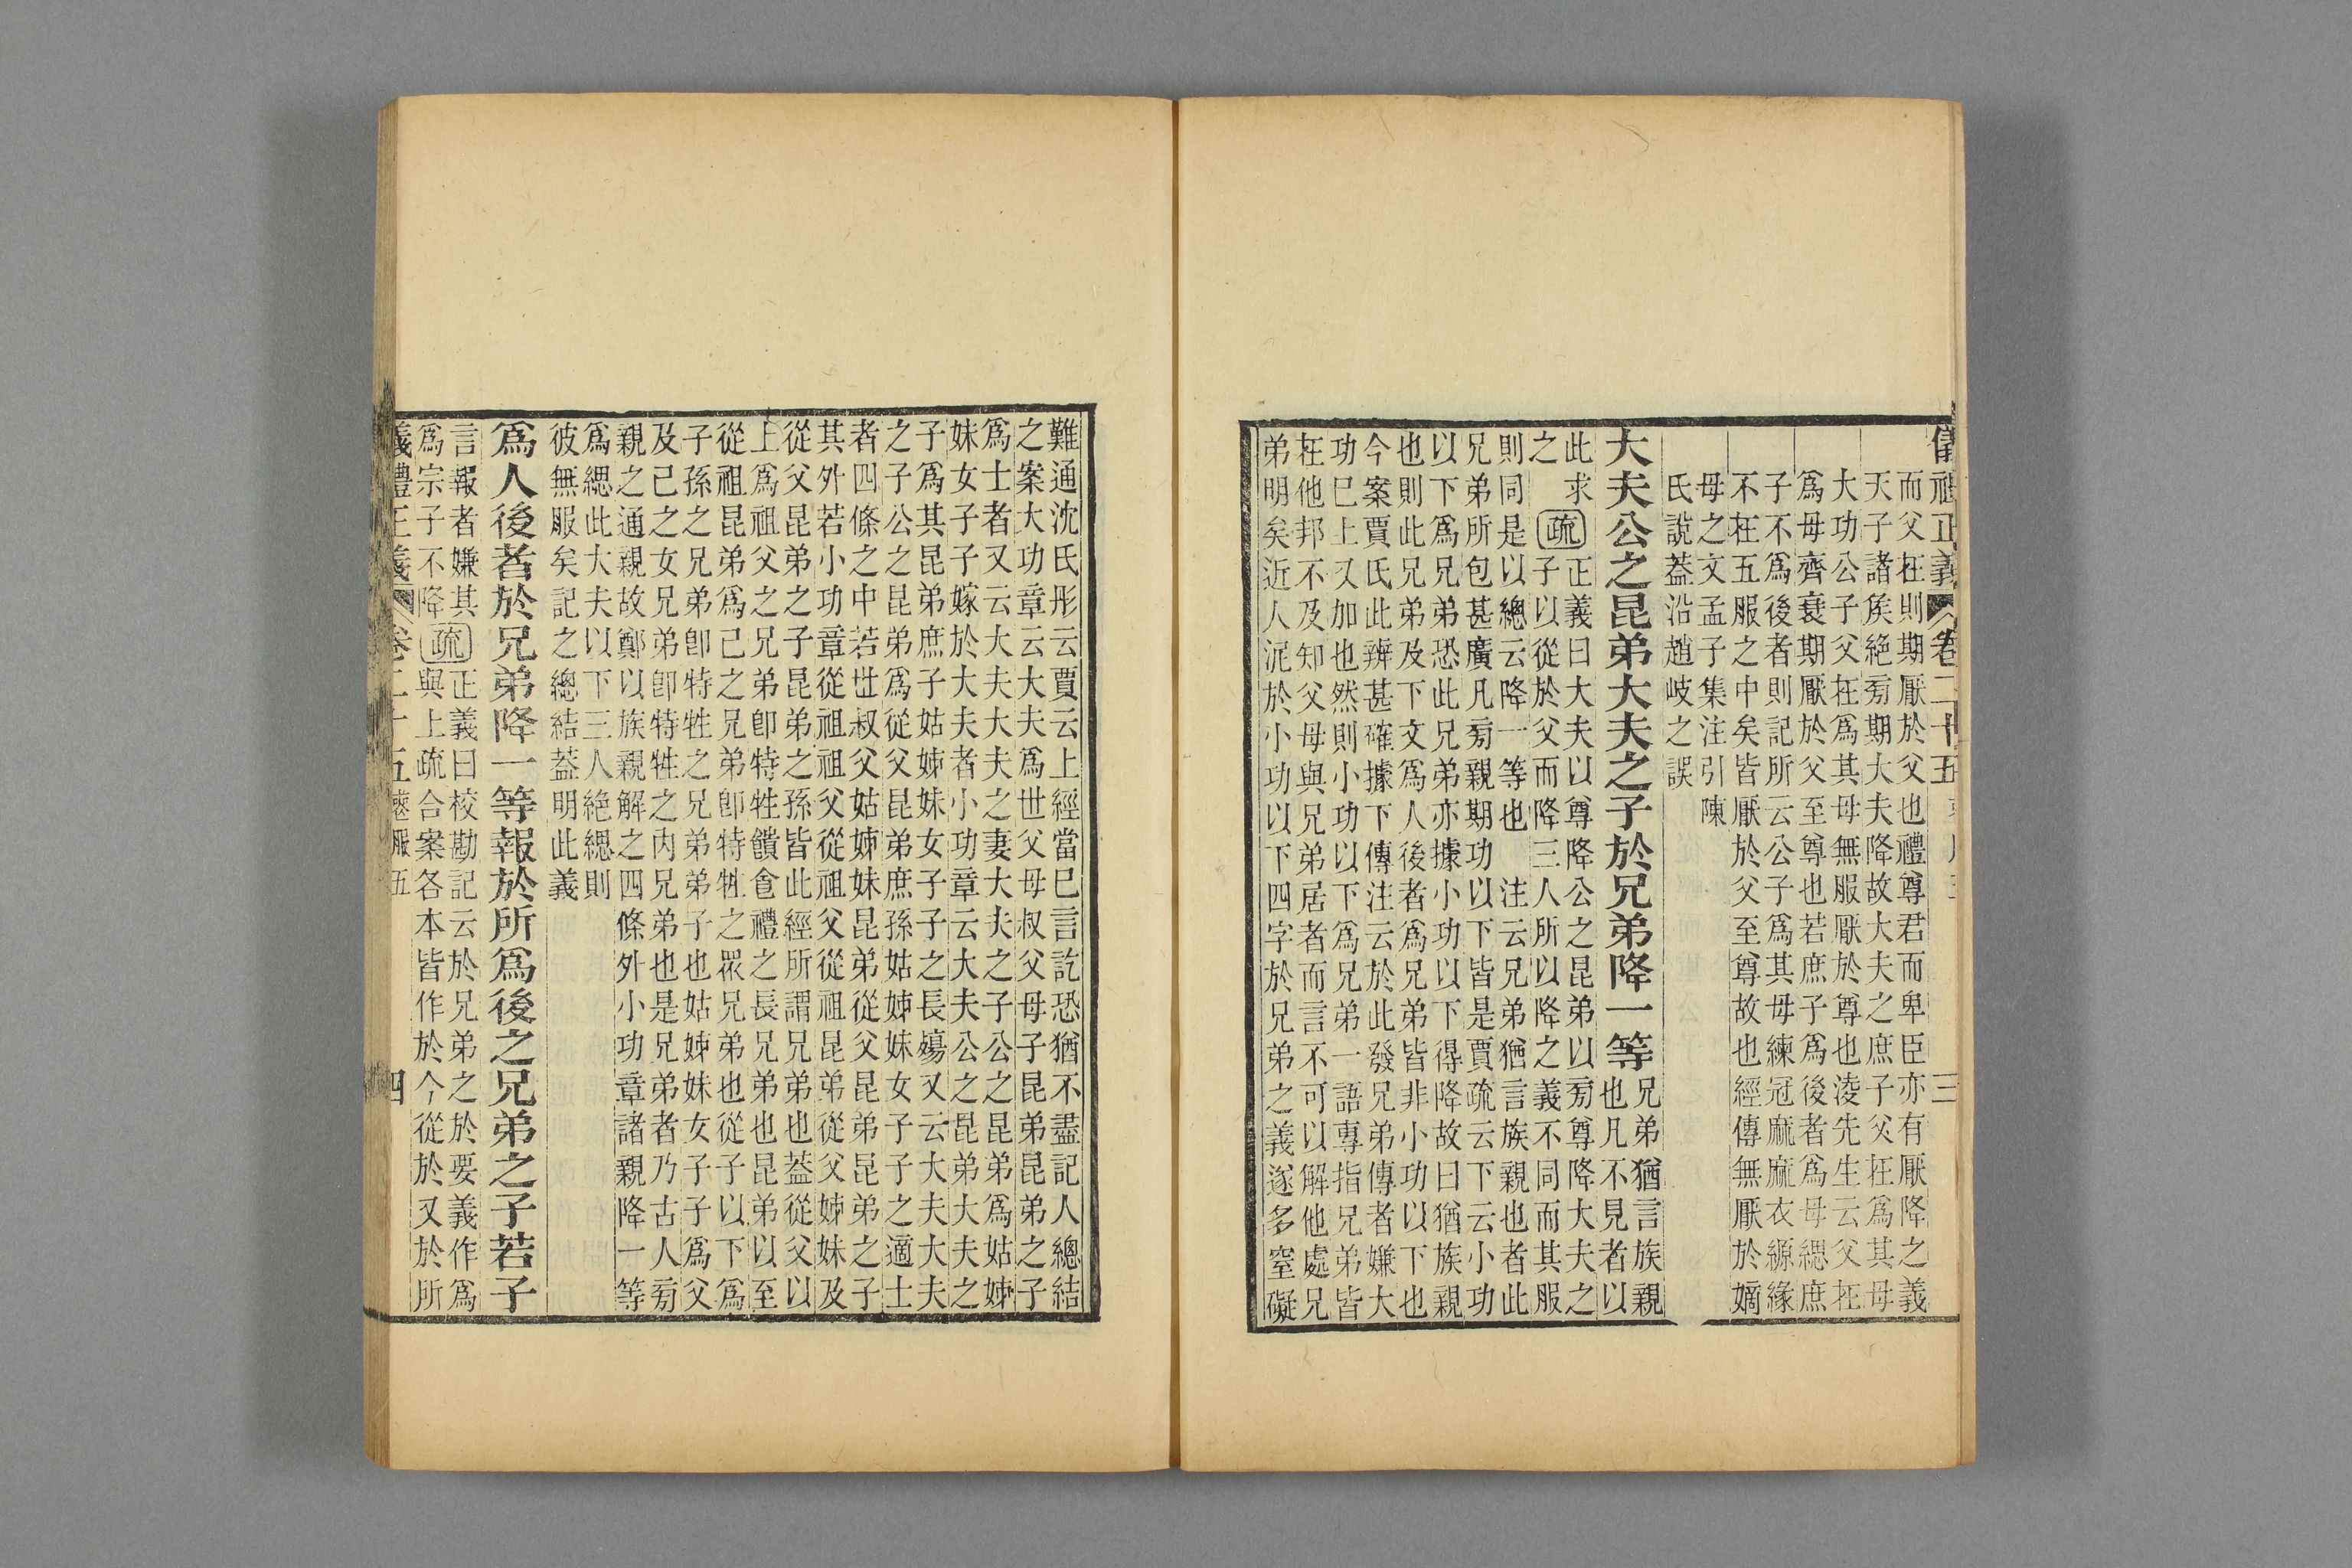 儀禮正義 卷二十五 三
而父在則期厭於父也禮尊君而卑臣亦有厭降之義
天子諸侯絕旁期大夫降故大夫之庶子父在爲其母
大功公子父在爲其母無服厭於尊也淩先生云父在
爲母齊衰期厭於父至尊也若庶子爲後者爲母緦庶
子不爲後者則記所云公子爲其母練冠麻麻衣縓緣
不在五服之中矣皆厭於父至尊故也經傳無厭於嫡
母之文孟子集注引陳
氏說葢沿趙岐之誤
大夫公之昆弟大夫之子於兄弟降一等
兄弟猶言族親
也凡不見者以
此求
之
疏
正義曰大夫以尊降公之昆弟以旁尊降大夫之
子以從於父而降三人所以降之義不同而其服
則同是以總云降一等也 注云兄弟猶言族親也者此
兄弟所包甚廣凡旁親期功以下皆是賈疏云下云小功
以下爲兄弟恐此兄弟亦據小功以下得降故曰猶族親
也則此兄弟及下文爲人後者爲兄弟皆非小功以下也
今案賈氏此辨甚確據下傳注云於此發兄弟傳者嫌大
功巳上又加也然則小功以下爲兄弟一語專指兄弟皆
在他邦不及知父母與兄弟居者而言不可以解他處兄
弟明矣近人泥於小功以下四字於兄弟之義遂多窒礙
難通沈氏彤云賈云上經當巳言訖恐猶不盡記人總結
之案大功章云大夫爲世父母叔父母子昆弟昆弟之子
爲士者又云大夫大夫之妻大夫之子公之昆弟爲姑姊
妹女子子嫁於大夫者小功章云大夫公之昆弟大夫之
子爲其昆弟庶子姑姊妹女子子之長殤又云大夫大夫
之子公之昆弟爲從父昆弟庶孫姑姊妹女子子之適士
者四條之中若世叔父姑姊妹昆弟從父昆弟昆弟之子
其外若小功章從祖祖父從祖父從祖昆弟從父姊妹及
從父昆弟之子昆弟之孫皆此經所謂兄弟也葢從父以
上爲祖父之兄弟卽特牲饋食禮之長兄弟也昆弟以至
從祖昆弟爲己之兄弟卽特牲之衆兄弟也從子以下爲
子孫之兄弟卽特牲之兄弟弟子也姑姊妹女子子爲父
及己之女兄弟卽特牲之內兄弟也是兄弟者乃古人旁
親之通親故鄭以族親解之四條外小功章諸親降一等
爲緦此大夫以下三人絕緦則
彼無服矣記之總結葢明此義
爲人後者於兄弟降一等報於所爲後之兄弟之子若子
言報者嫌其
爲宗子不降
疏
正義曰校勘記云於兄弟之於要義作爲
與上疏合案各本皆作於今從於又於所
義禮正義 卷二十五 喪服五 四